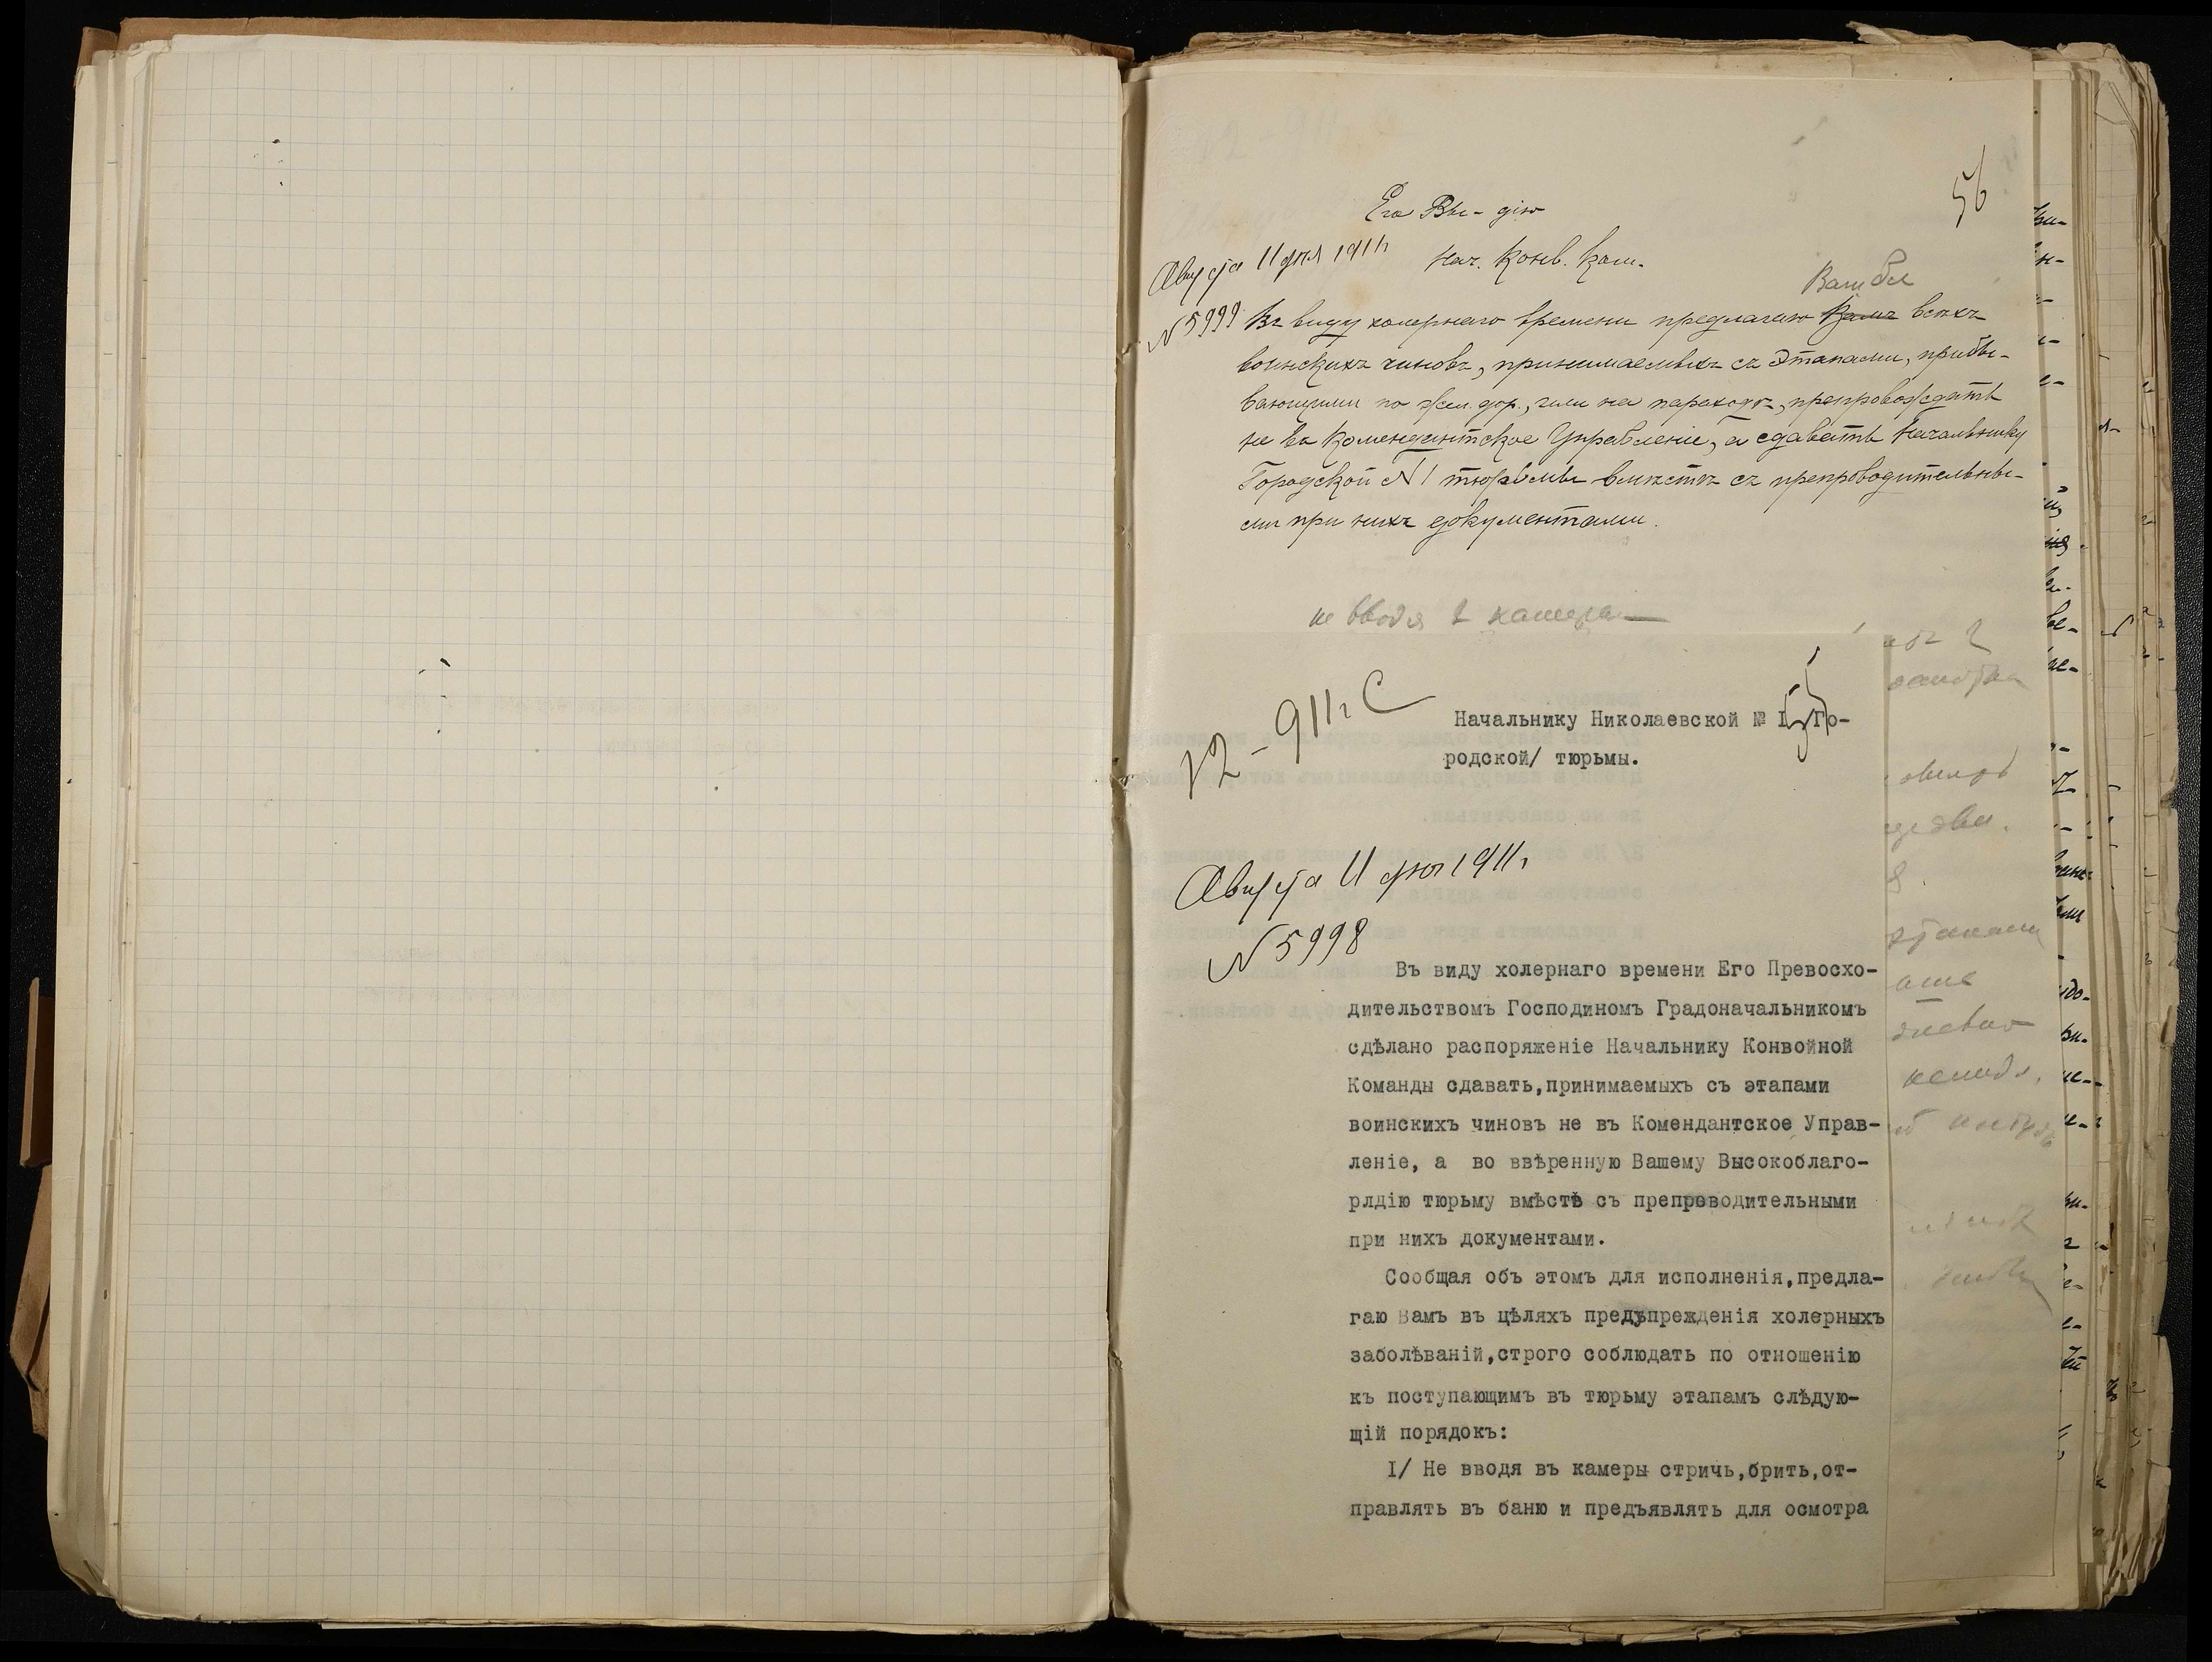 56
Его Вы-дію
Августа 11 дня 1911г
Нач. Конв. Ком.
№ 5999
Въ виду холернаго времени предлагаю Вамъ всѣхъ
воинскихъ чиновъ, принимаемыхъ съ этапами, прибы-
вающими по жел. дор., или на пароходѣ, препровождать
не въ Комендантское Управленіе, а сдавать Начальнику
Городской № 1 тюрьмы вмѣстѣ съ препроводительны-
ми при нихъ документами.
не вводя в камеры
55
12-911г С
Начальнику Николаевской № I /Го-
родской/ тюрьмы.
Августа 11 дня 1911г
№ 5998
Въ виду холернаго времени Его Превосхо-
дительствомъ Господиномъ Градоначальникомъ
сдѣлано распоряженіе Начальнику Конвойной
Команды сдавать,принимаемыхъ съ этапами
воинскихъ чиновъ не въ Комендантское Управ-
леніе, а во ввѣренную Вашему Высокоблаго-
рлдію тюрьму вмѣстѣ съ препроводительными
при нихъ документами.
Сообщая объ этомъ для исполненія,предла-
гаю Вамъ въ цѣляхъ предупрежденія холерныхъ
заболѣваній,строго соблюдать по отношенію
къ поступающимъ въ тюрьму этапамъ слѣдую-
щій порядокъ:
I/ Не вводя въ камеры стричь,брить,от-
правлять въ баню и предъявлять для осмотра